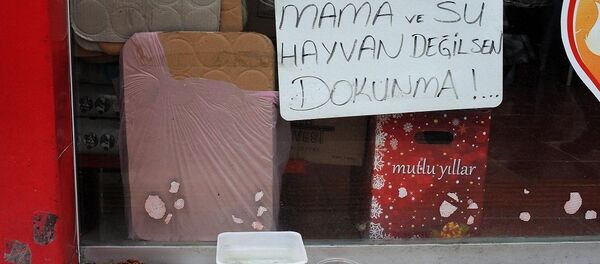 MAMA ve SU
HAYVAN DEĞİLSEN
DOKUNMA !...
VESİ
mutlu yıllar